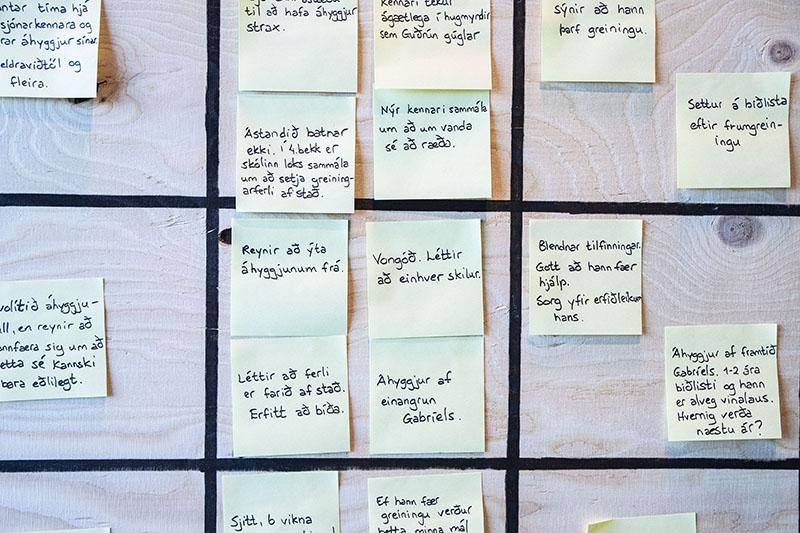 ntar tíma hjá
sjónarkennara og
rar áhyggjur sínar.
eldraviðtöl og
fleira.
til að hafa áhyggjur
strax.
Kennari tekur
ágætlega í hugmyndir
sem Guðrún gúglar
Sýnir að hann
þarf greiningu.
Ástandið batnar
ekki. Í 4.bekk er
skólinn loks sammála
um að setja greining-
arferli af stað.
Nýr kennari sammála
um að um vanda
sé að ræða.
Settur á biðlista
eftir frumgrein-
ingu
volítið áhyggju-
ll, en reynir að
nnfæra sig um að
etta sé kannski
bara eðlilegt.
Reynir að ýta
áhyggjunum frá.
Vongóð. Léttir
að einhver skilur.
Blendnar tilfinningar.
Gott að hann fær
hjálp.
Sorg yfir erfiðleikum
hans.
Léttir að ferli
er farið af stað.
Erfitt að bíða.
Áhyggjur af
einangrun
Gabríels.
Áhyggjur af framtíð
Gabríels. 1-2 ára
biðlisti og hann
er alveg vinalaus.
Hvernig verða
næstu ár?
Sjitt, 6 vikna
Ef hann fær
greiningu verður
þetta minna mál